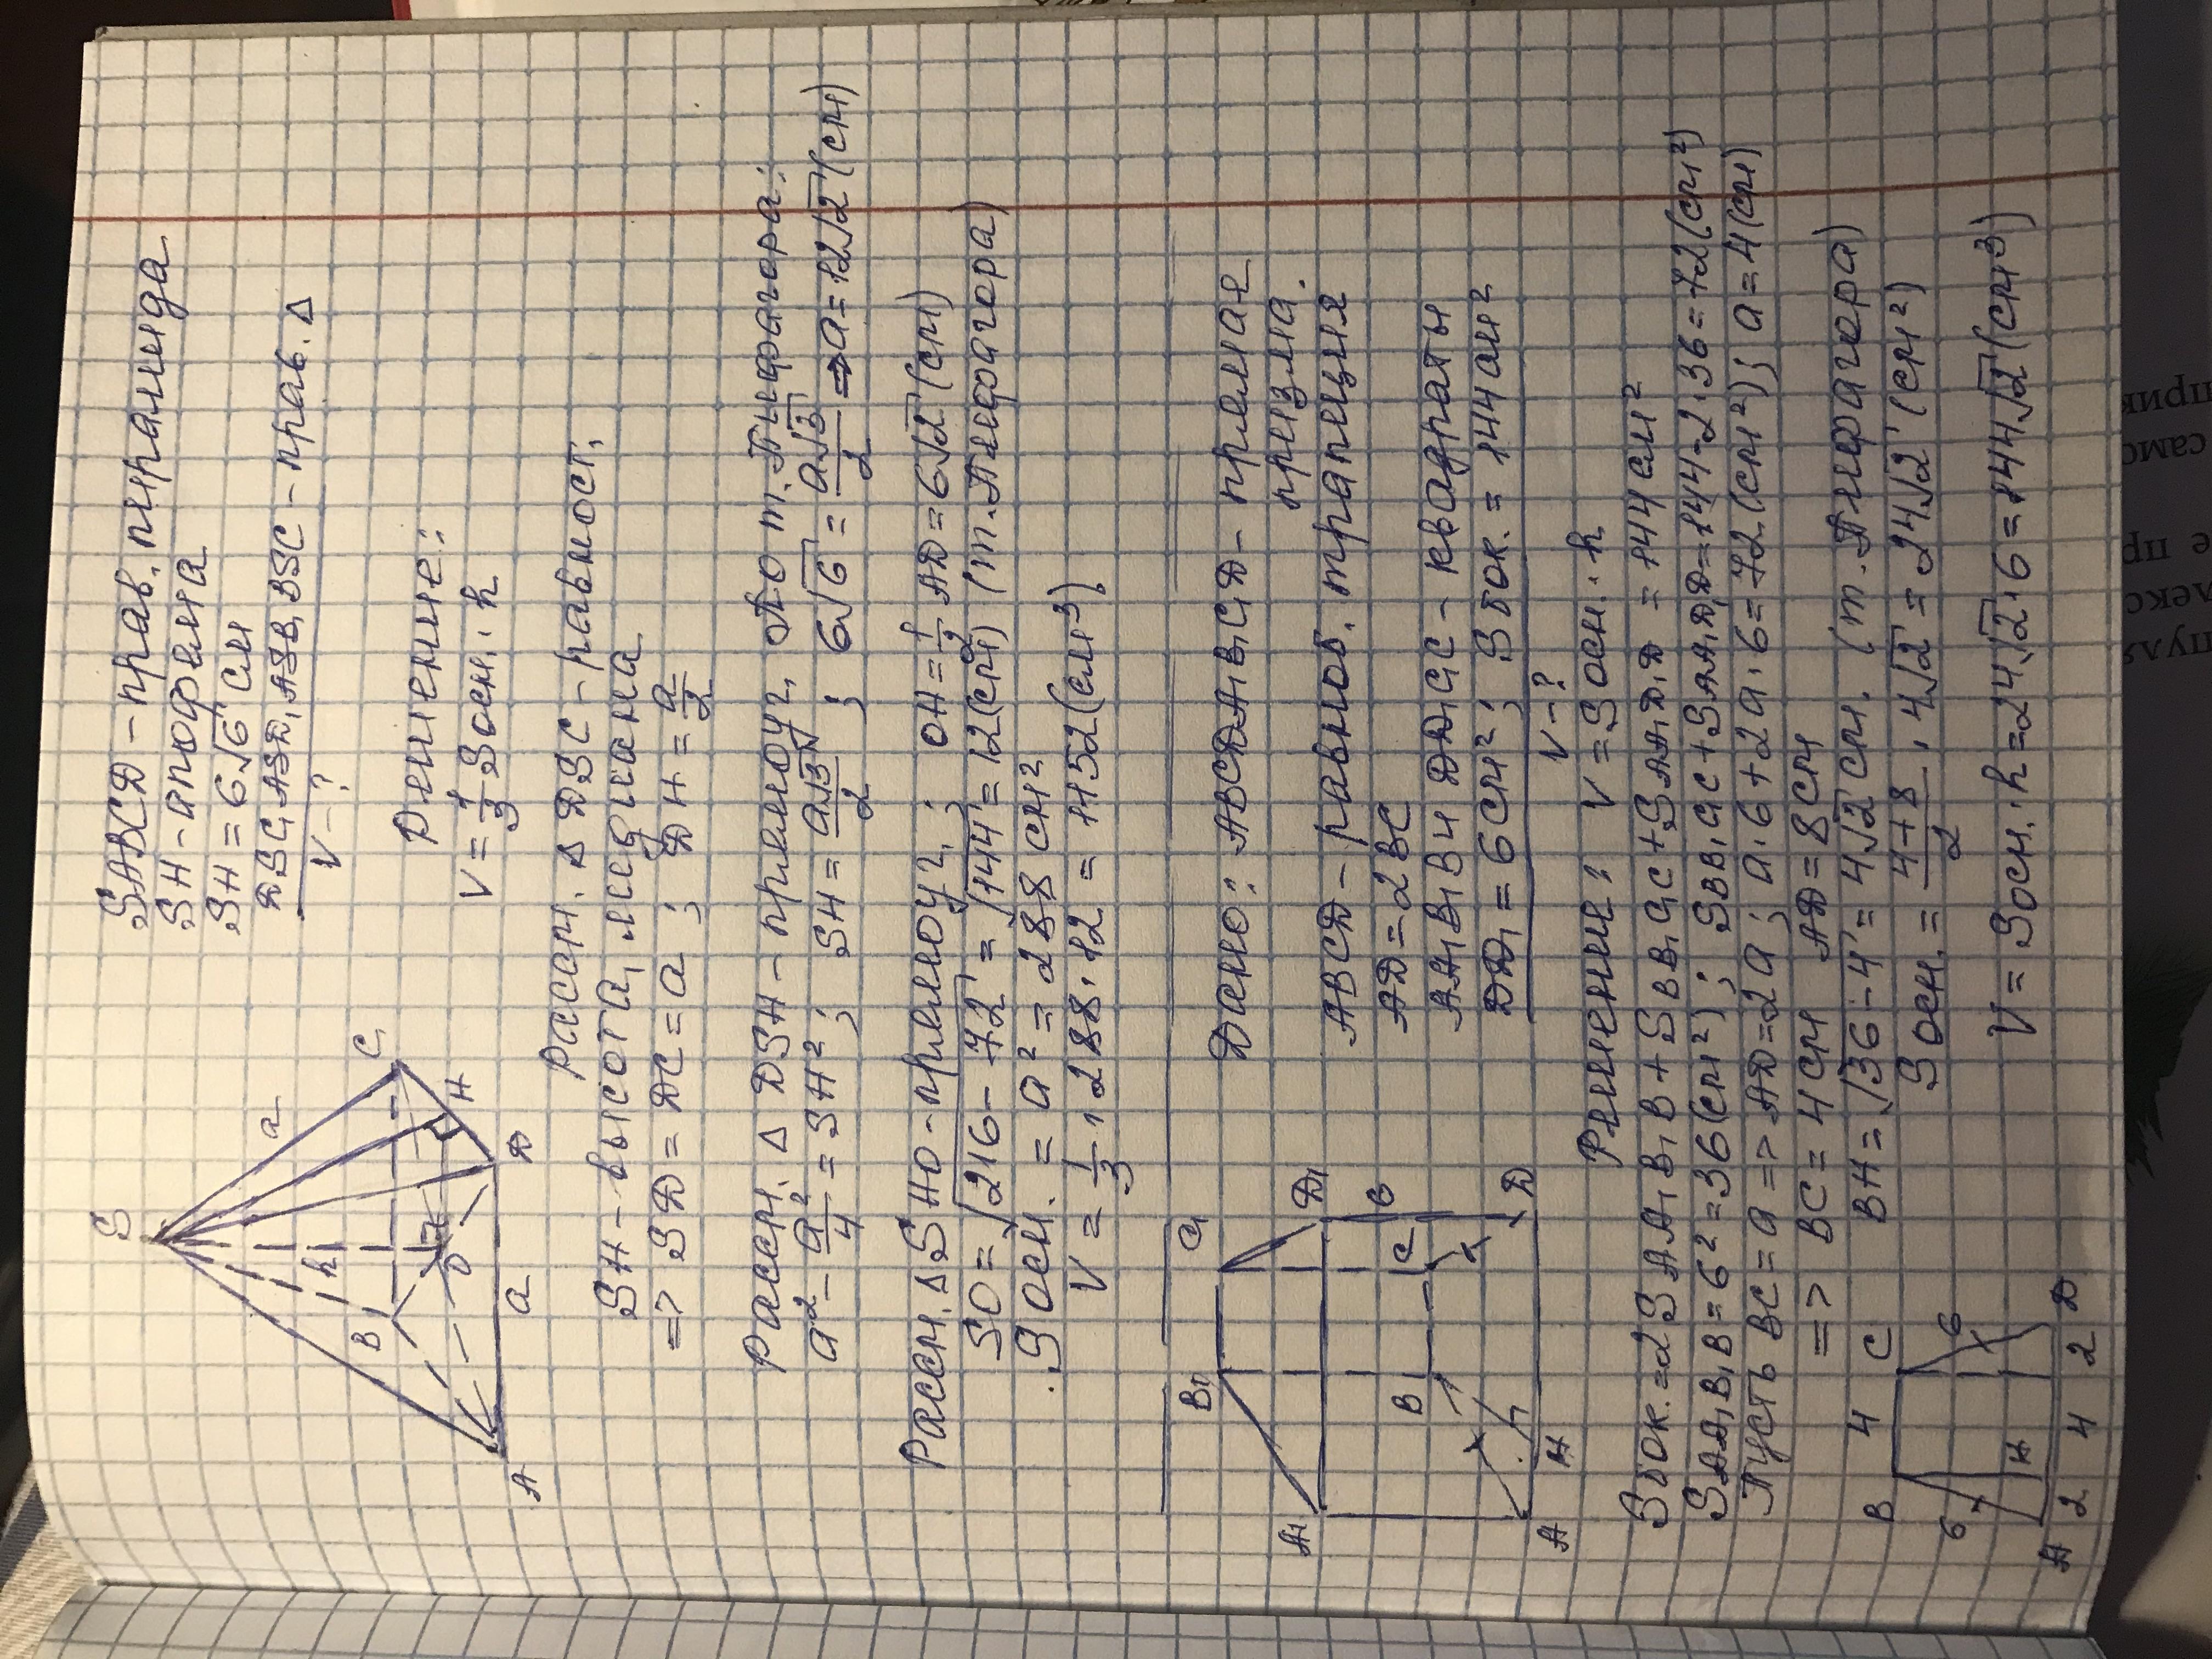 SABCD - прав. пирамида
SH - апофема
SH = 6√6 см
DSC, ASD, ASB, BSC - прав. Δ
V - ?
S
a
C
h
B
H
O
D
a
A
Решение:
V = 1/3 Sосн. · h
Рассм. Δ DSC - равност.
SH - высота, медиана
=> SD = DC = a ; DH = a/2
Рассм. Δ DSH - прямоуг. По т. Пифагора:
a² - a²/4 = SH² ; SH = a√3/2 ; 6√6 = a√3/2 => a = 12√2 (см)
Рассм. Δ SHO - прямоуг. ; OH = 1/2 AD = 6√2 (см)
SO = √216 - 72 = √144 = 12 (см) (т. Пифагора)
Sосн. = a² = 288 см²
V = 1/3 · 288 · 12 = 1152 (см³)
Дано: ABCDA₁B₁C₁D - прямая
призма.
ABCD - равноб. трапеция
AD = 2BC
AA₁B₁B и DD₁C₁C - квадраты
DD₁ = 6 см² ; Sбок. = 144 см²
V - ?
B₁
C₁
A₁
D₁
6
B
C
A
H
D
Решение: V = Sосн. · h
Sбок. = 2SAA₁B₁B + SBB₁C₁C + SAA₁D₁D = 144 см²
SAA₁B₁B = 6² = 36 (см²) ; SBB₁C₁C + SAA₁D₁D = 144 - 2 · 36 = 72 (см²)
Пусть BC = a => AD = 2a ; a · 6 + 2a · 6 = 72 (см²) ; a = 4 (см)
=> BC = 4 см AD = 8 см
BH = √36 - 4 = 4√2 см. (т. Пифагора)
Sосн. = 4 + 8/2 · 4√2 = 24√2 (см²)
V = Sосн. · h = 24√2 · 6 = 144√2 (см³)
B 4 C
6
6
H
A 2 4 2 D
прик
само
е пр
лекс
пуля